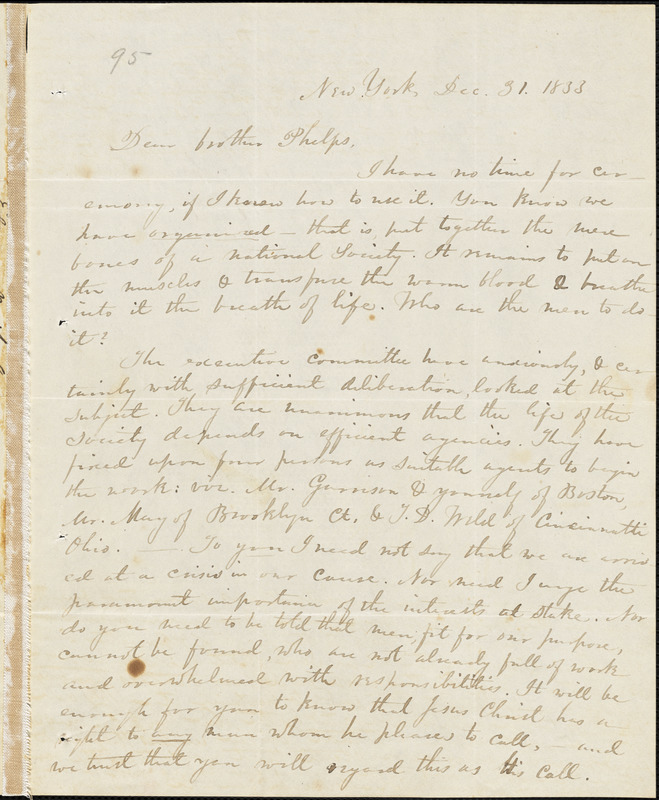 95
New York, Dec. 31. 1833
Dear brother Phelps,
I have no time for cer-
emony, if I knew how to use it. You know we
have organized - that is, put together the mere
bones of a national Society. It remains to put on
the muscles & transfuse the warm blood & breathe
into it the breath of life. Who are the men to do
it?
The executive committee have anxiously, & cer-
tainly with sufficient deliberation, looked at the
subject. They are unanimous that the life of the
Society depends on efficient agencies. They have
fixed upon four persons as suitable agents to begin
the work: viz. Mr. Garrison & yourself of Boston,
Mr. May of Brooklyn Ct. & T. D. Weld of Cincinnatti
Ohio. — To you I need not say that we are arriv
ed at a crisis in our cause. Nor need I urge the
paramount importance of the interests at stake. Nor
do you need to be told that men, fit for our purpose,
cannot be found, who are not already full of work
and overwhelmed with responsibilities. It will be
enough for you to know that Jesus Christ has a
right to any man whom he pleases to call, - and
we trust that you will regard this as his call.